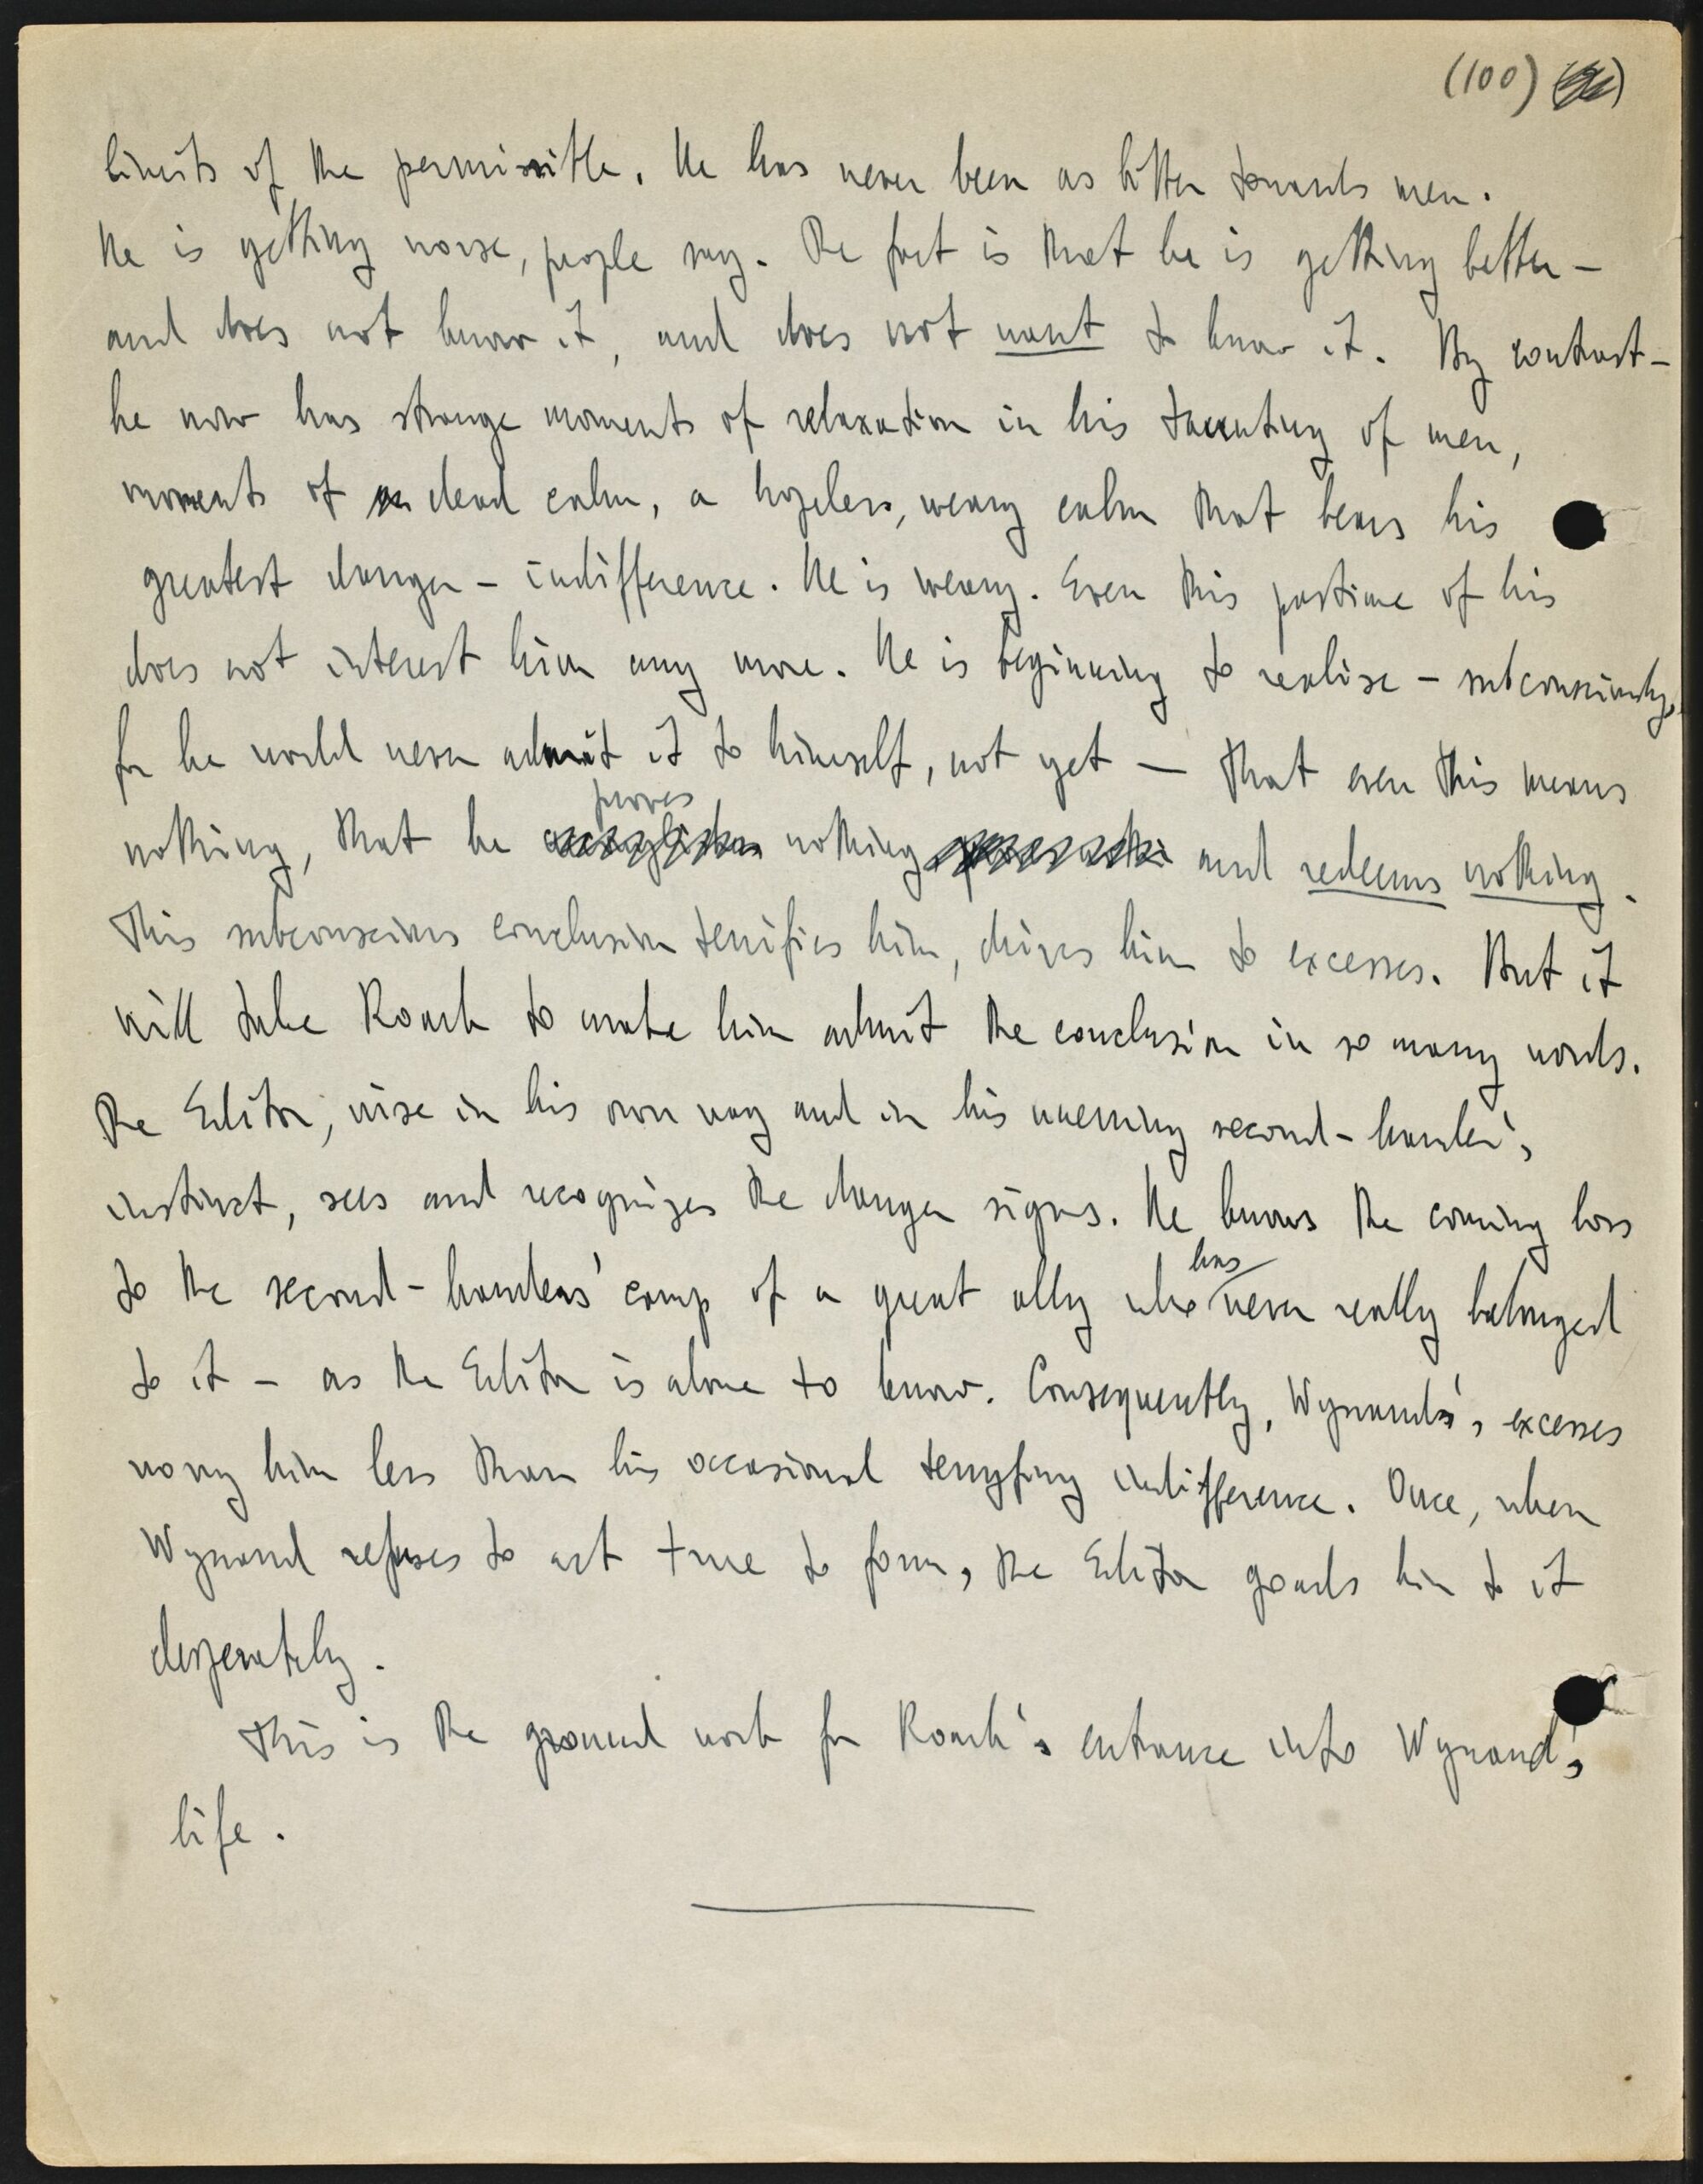 (100)
limits of the permissible. He has never been as bitter towards men.
He is getting worse, people say. The fact is that he is getting better —
and does not know it, and does not want to know it. By contrast —
he now has strange moments of relaxation in his taunting of men,
moments of dead calm, a hopeless, weary calm that bears his
greatest danger — indifference. He is weary. Even this pastime of his
does not interest him any more. He is beginning to realise — subconsciously,
for he would never admit it to himself, not yet — that even this means
proves
nothing, that he accomplishes nothing and redeems nothing.
This subconscious conclusion terrifies him, drives him to excesses. But it
will take Roark to make him admit the conclusion in so many words.
The Editor, wise in his own way and in his unerring second-hander's
instinct, sees and recognizes the danger signs. He knows the coming loss
has
to the second-handers' camp of a great ally who never really belonged
to it — as the Editor is alone to know. Consequently, Wynand's excesses
worry him less than his occasional terrifying indifference. Once, when
Wynand refuses to act true to form, the Editor goads him to it
desperately.
This is the ground work for Roark's entrance into Wynand's
life.